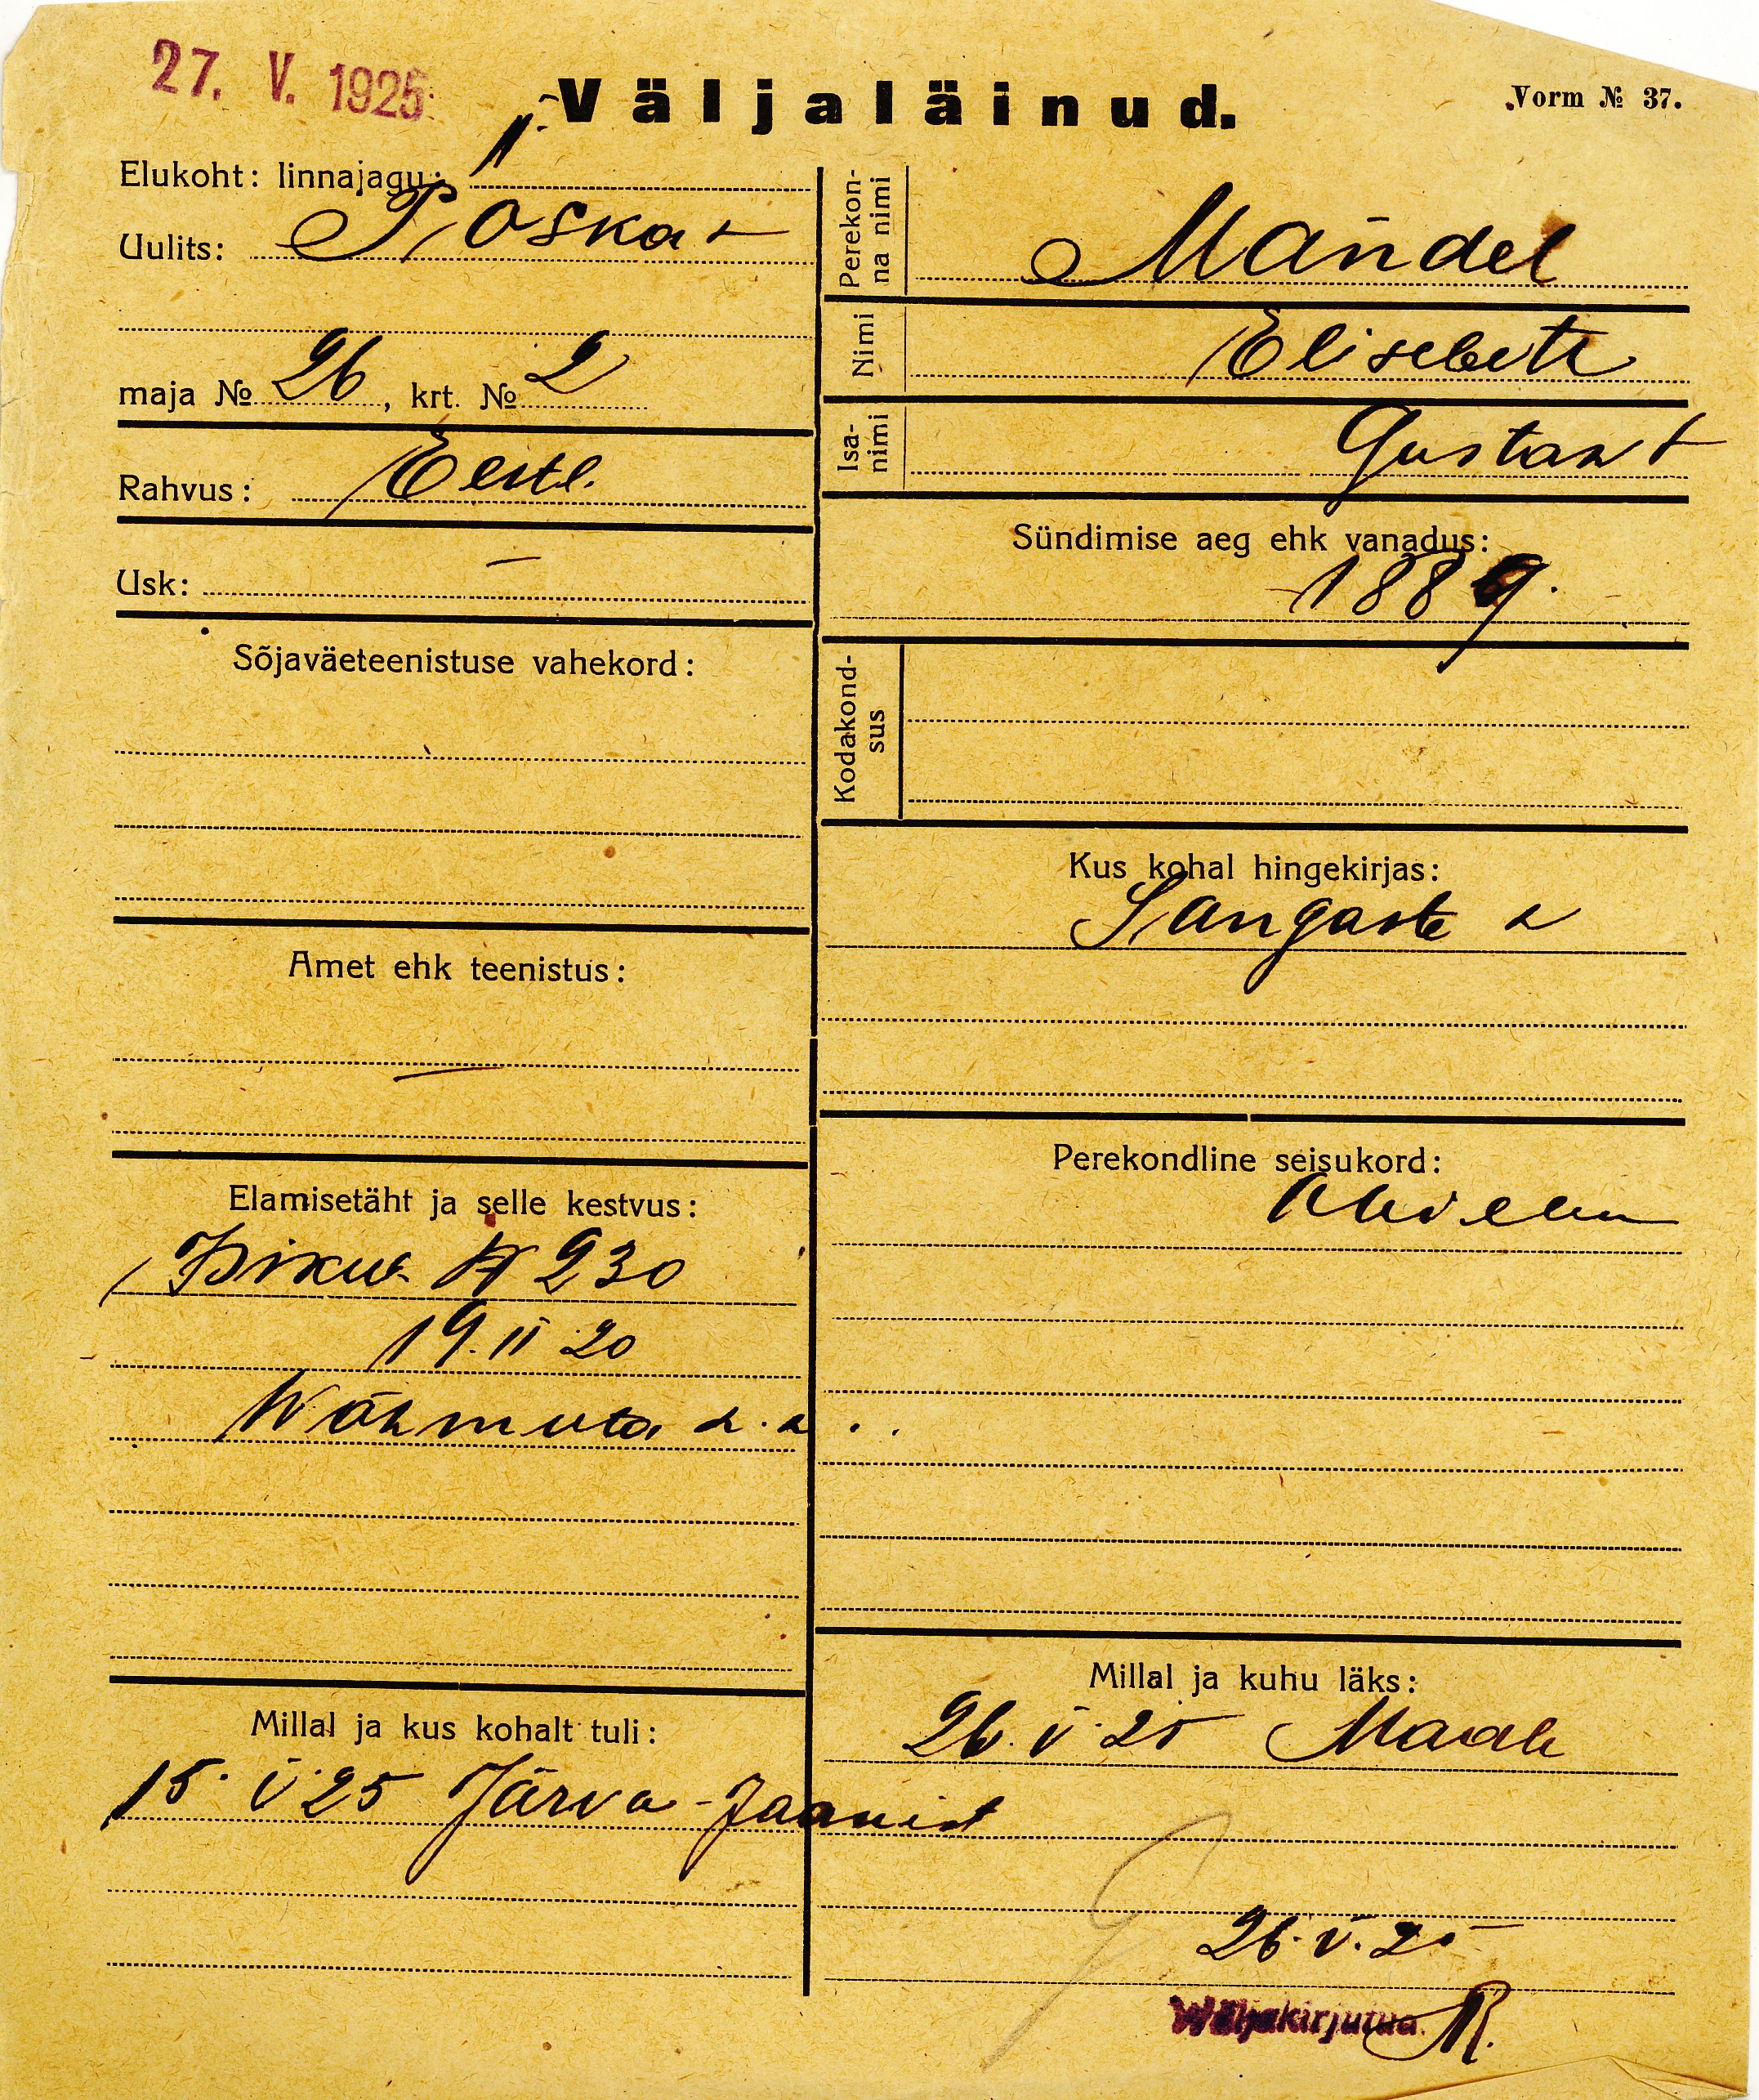 27. V. 1925
Väljaläinud.
Vorm № 37.
Elukoht: linnajagu: II
Uulits: Poska t
maja № 26, krt. № 2
Rahvus: Eestl.
Usk: —
Sõjaväeteenistuse vahekord:
Amet ehk teenistus:
—
Elamisetäht ja selle kestvus:
Isikut № 230
19. II 20
Wõhmuta v. v.
Millal ja kus kohalt tuli:
15. V 25 Järva-Jaanist
Perekonna nimi
Mändel
Nimi
Elisebeth
Isanimi
Gustav t
Sündimise aeg ehk vanadus:
1889.
Kodakondsus
Kus kohal hingekirjas:
Sangaste v
Perekondline seisukord:
Millal ja kuhu läks:
26. V 25 Maale
26. V. 25
Wäljakirjutud. R.